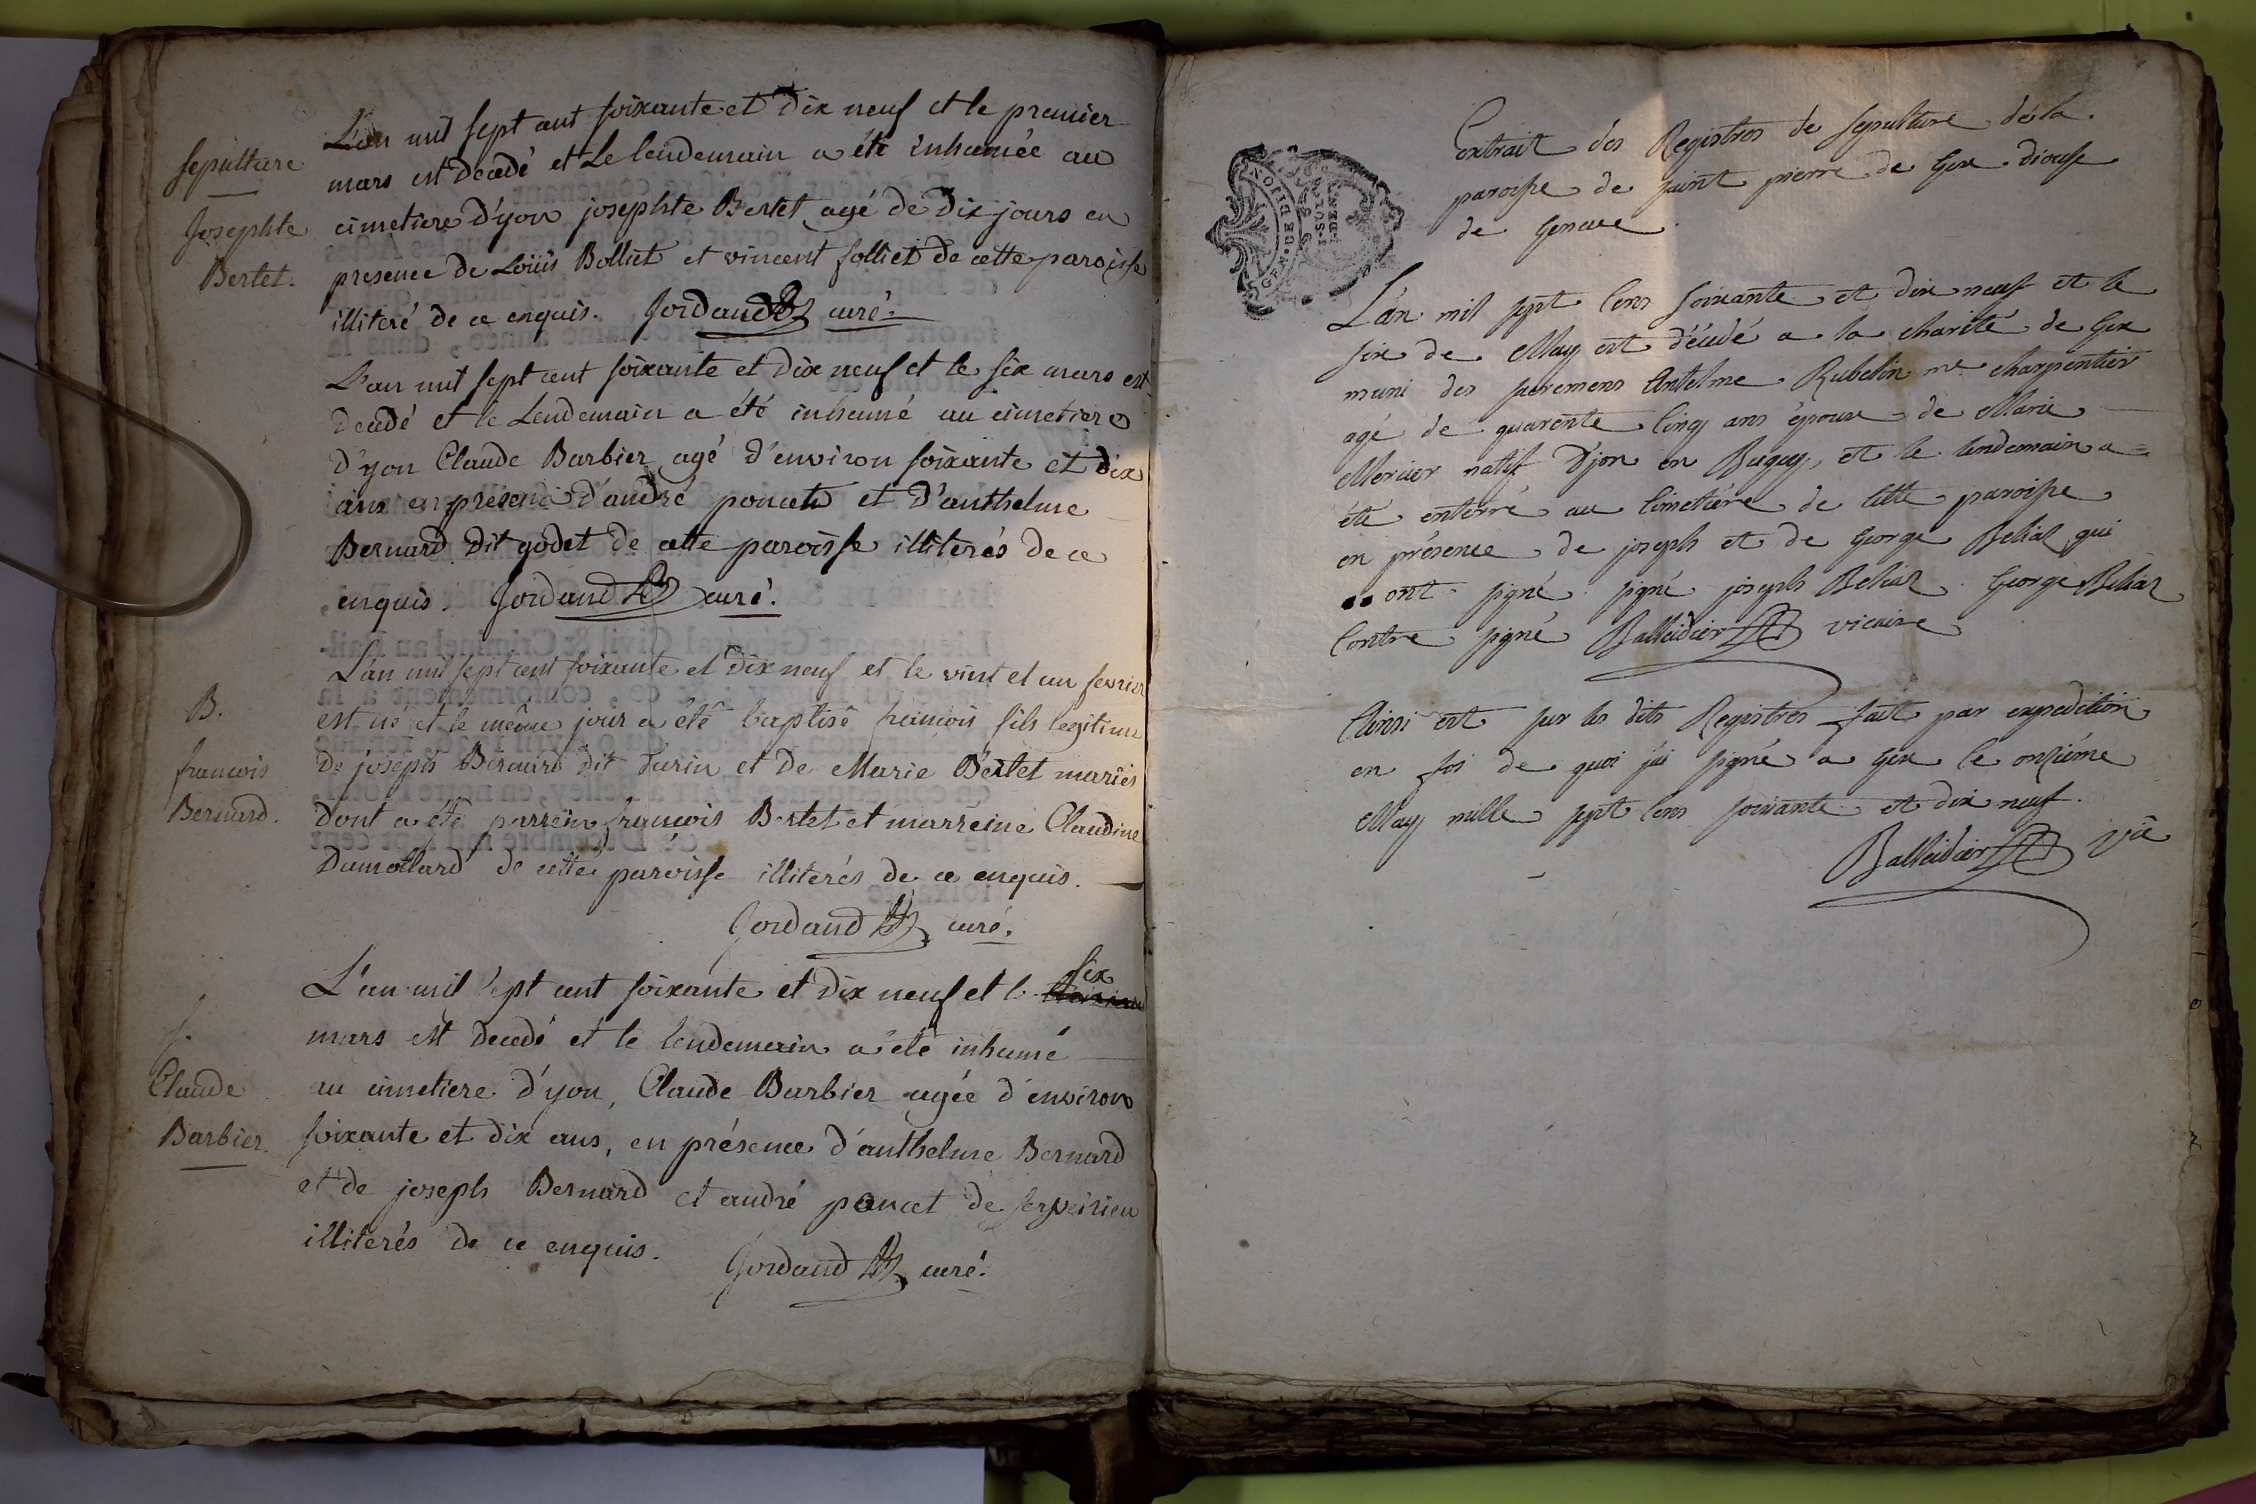 L'an mil sept cent soixante et dix neuf et le premier
sepulture
mars est decedé et Le lendemain a été inhumée au
Josephte
cimetiere d'yon josephte Bertet agé de dix jours en
Bertet.
presence de Loüis Bolliet et vincent folliet de cette paroisse
illiteré de ce enquis. Jordand curé.
L'an mil sept cent soixante et dix neuf et le six mars est
decedé et le Lendemain a été inhumé au cimetiere
d'yon Claude Barbier agé d'environ soixante et dix
ans en présence d'andré poncet et d'anthelme
Bernard dit godet de cette paroisse illiterés de ce
enquis. Jordand curé.
L'an mil sept cent soixante et dix neuf et le vint et un fevrier
B.
est né et le même jour a été baptisé francois fils legitime
francois
de joseph Bernard dit turin et de Marie Bertet mariés
Bernard.
dont a été parrein francois Bertet et marreine Claudine
Dumollard de cette paroisse illiterés de ce enquis.
Jordand curé.
six
L'an mil sept cent soixante et dix neuf et le
mars est decedé et le lendemain a été inhumé
S.
Claude
au cimetiere d'yon, Claude Barbier agée d'environ
Barbier.
soixante et dix ans, en présence d'anthelme Bernard
et de joseph Bernard et andré poncet de serveirieu
illiterés de ce enquis.
Jordand curé.
Extrait des Registres de sepulture de la
paroisse de saint pierre de Gex diocese
de Geneve.
GEN. DE DIJON
L'an mil sept Cens soixante et dix neuf et le
six de May est décédé a la charité de Gex
muni des sacremens Antelme Rubelin me charpentier
agé de quarente Cinq ans époux de Marie
Mercier natif d'jon en Bugey, et le lendemain a
été enterré au Cimetiére de Cette paroisse
en présence de joseph et de George Beliat qui
ont signé. signé joseph Beliat. George Beliat
Contre signé Balleidier vicaire
Ainsi est sur les dits Registres fait par expedition
en foi de quoi j'ai signé a Gex le onziéme
May mille sept Cens soixante et dix neuf.
Balleidier vic